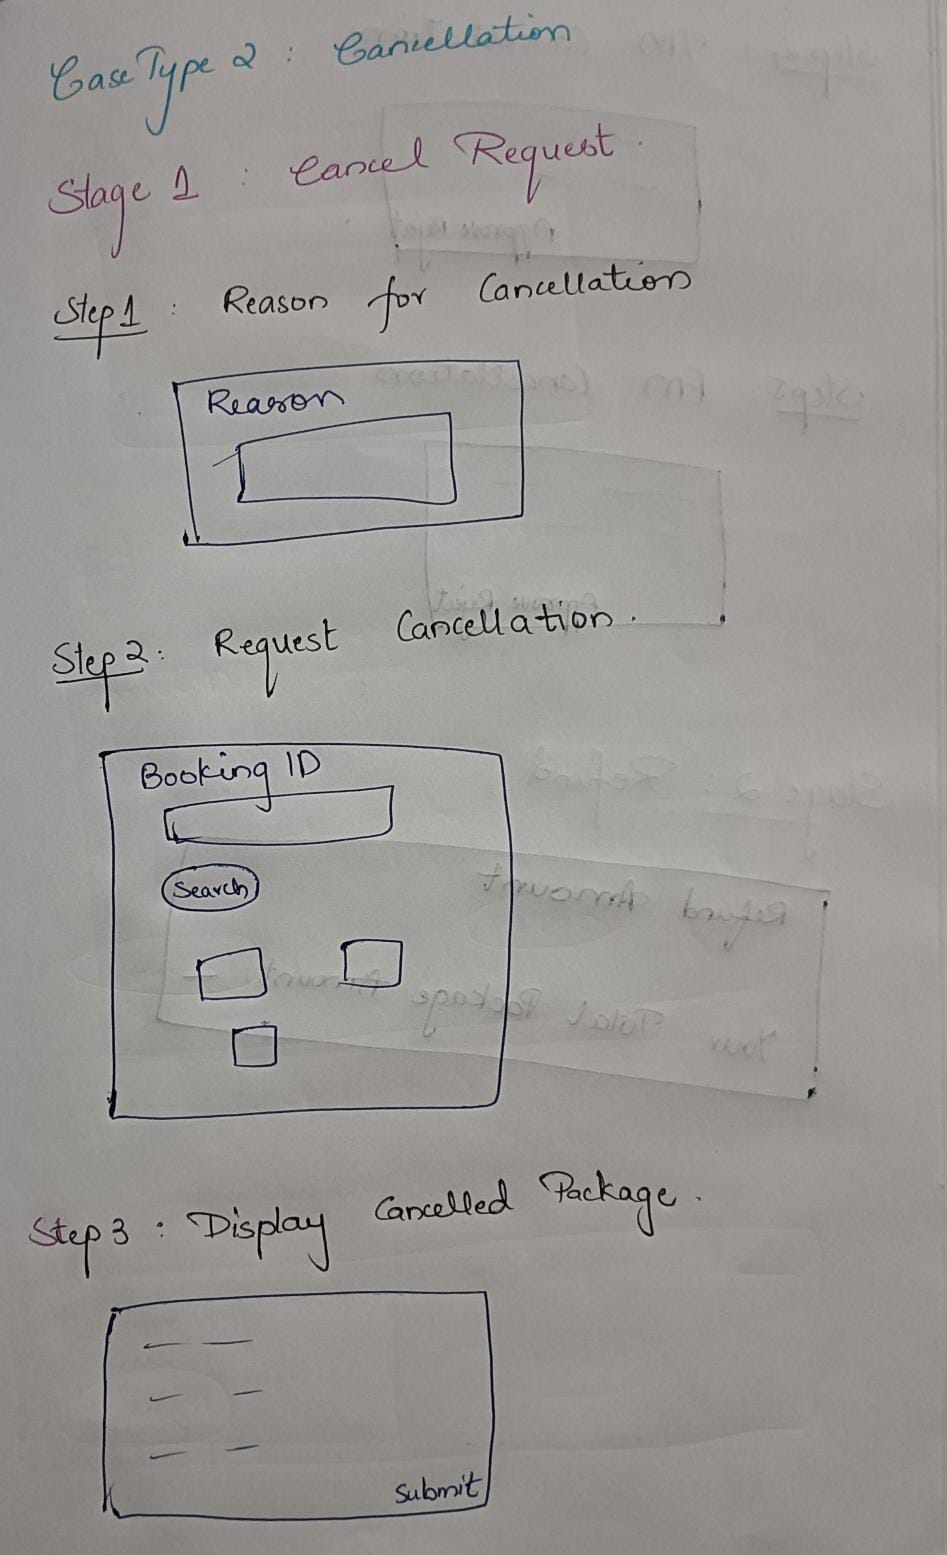 Case Type 2 : Cancellation
Stage 1 : Cancel Request
Step 1 : Reason for Cancellation
Reason
Step 2 : Request Cancellation.
Booking ID
Search
Step 3 : Display Cancelled Package.
Submit